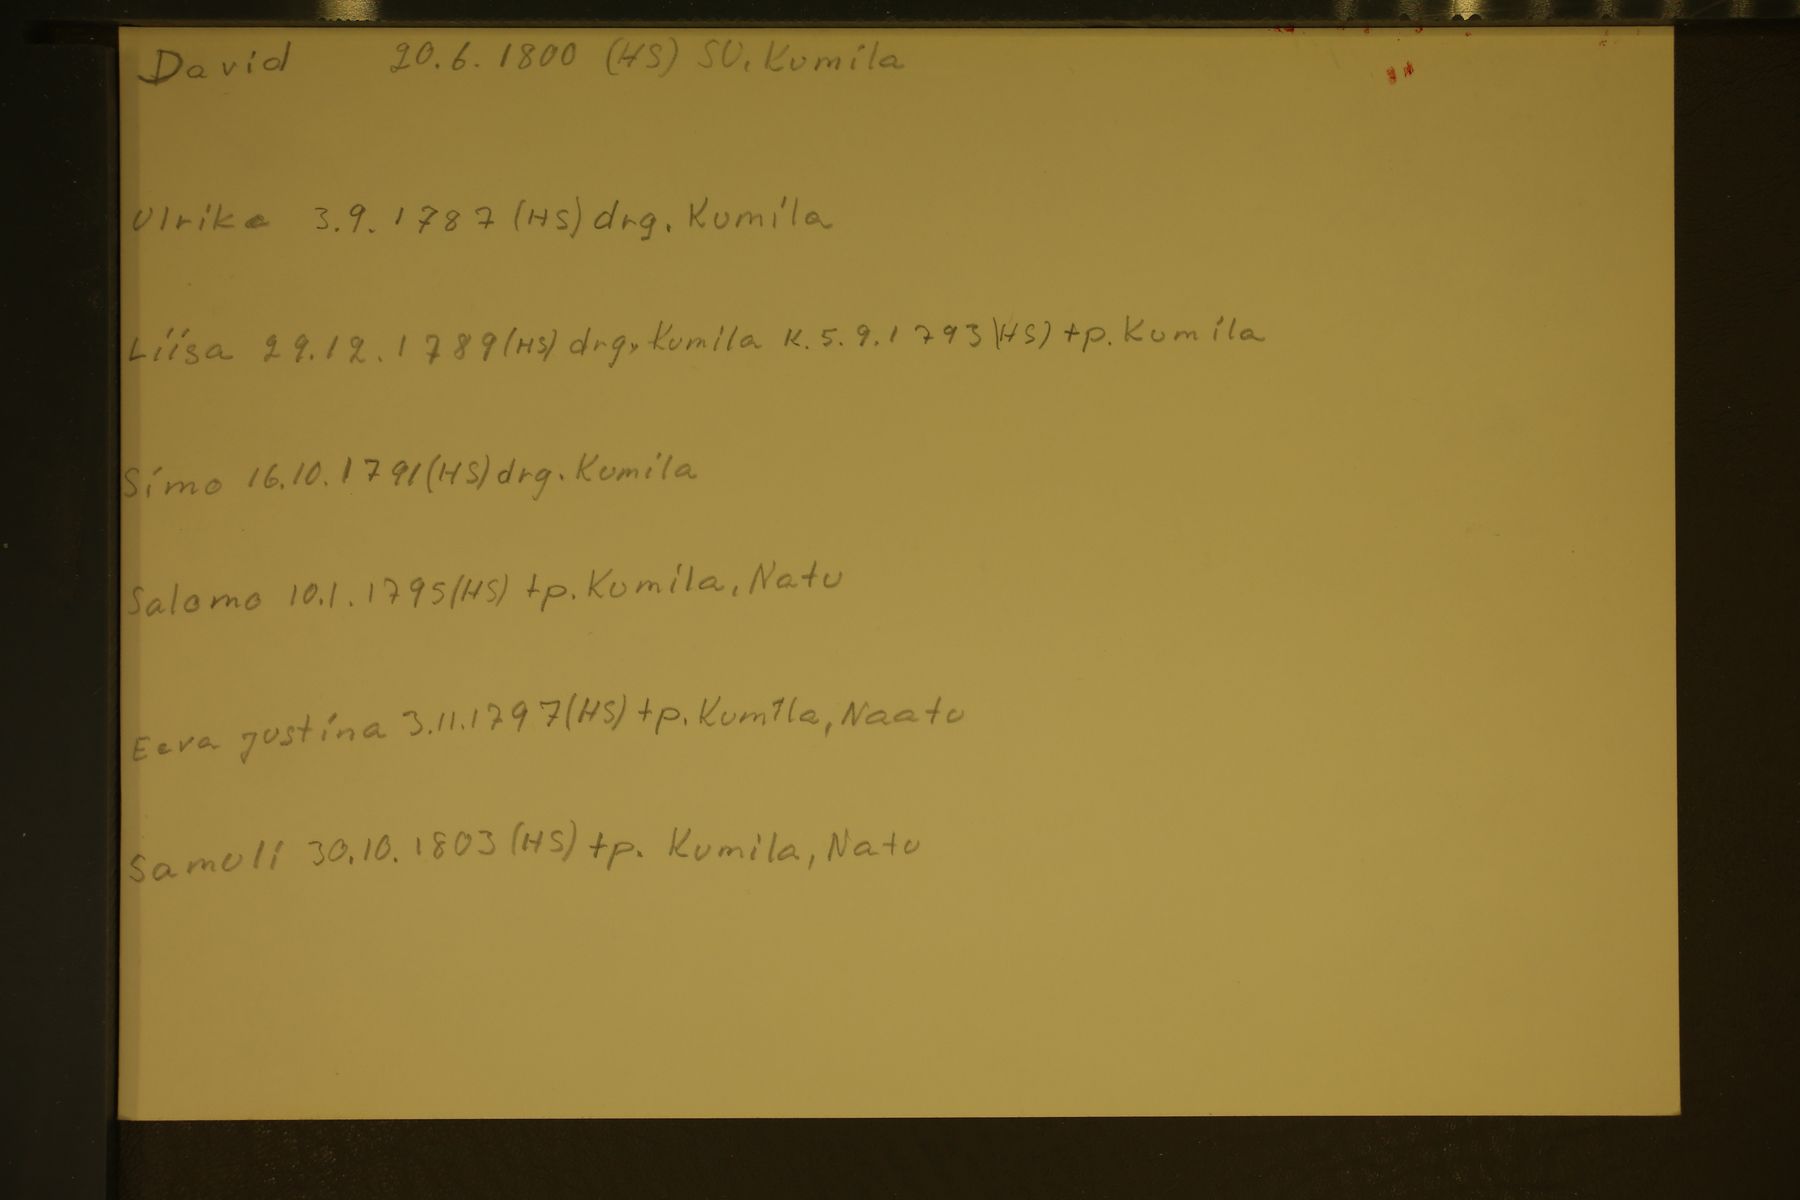 David 20.6.1800 (HS) SU. Kumila
Ulrike 3.9.1787 (HS) drg. Kumila
Liisa 29.12.1789 (HS) drg. Kumila K. 5.9.1793 (HS) tp. Kumila
Simo 16.10.1791 (HS) drg. Kumila
Salomo 10.1.1795 (HS) tp. Kumila, Natu
Eeva Justina 3.11.1797 (HS) tp. Kumila, Naatu
Samuli 30.10.1803 (HS) tp. Kumila, Natu